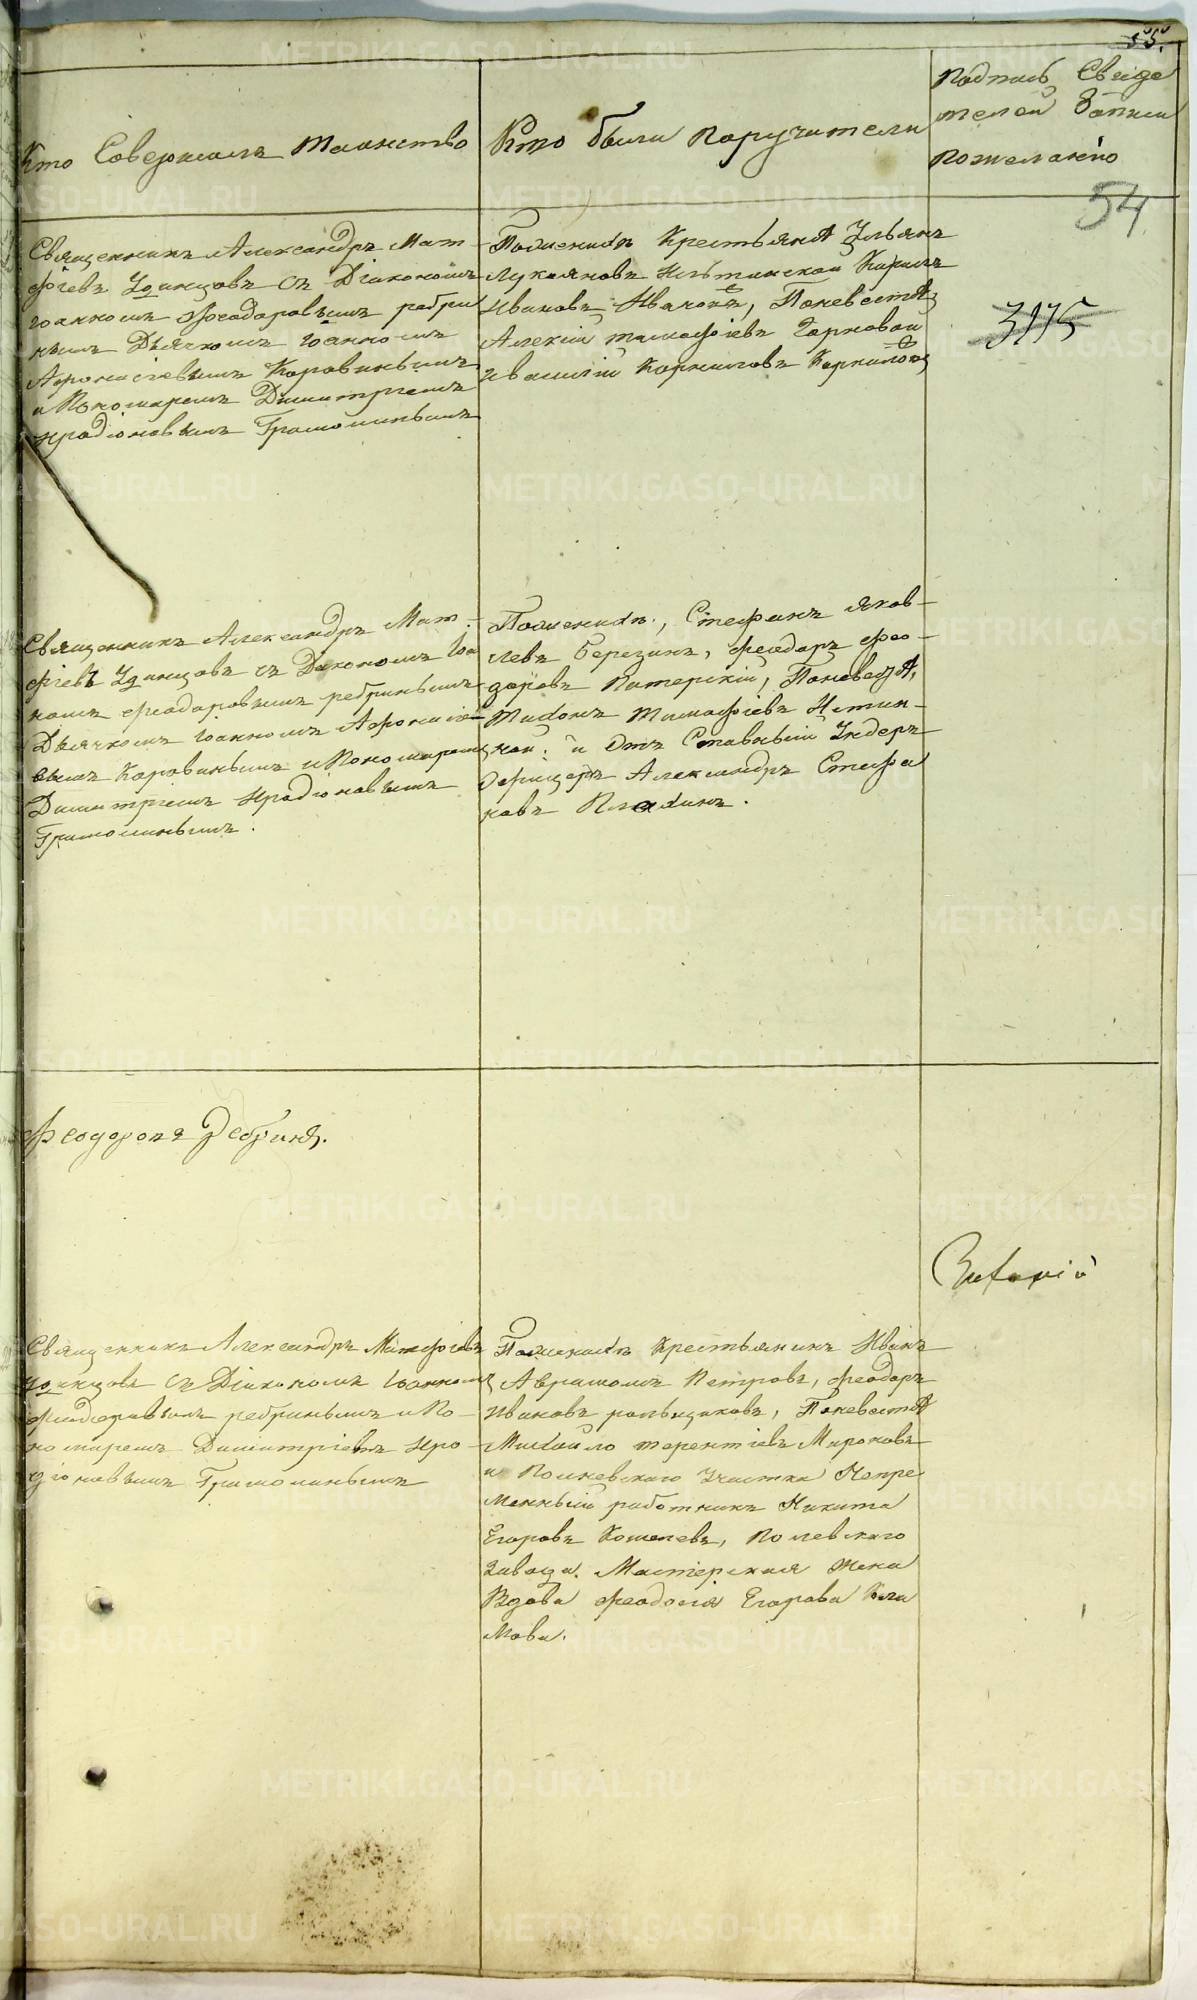 55.
Кто Совершалъ Таинство
Кто были поручители
подпись Свиде
телей Записи
пожеланію
54
3175
Священникъ Александръ Мат-
фіевъ Удинцовъ съ Діакономъ
іоанномъ Феодоровымъ ребри
нымъ Дьячкомъ іоанномъ
Афонасіевымъ Коровинымъ
и Пономаремъ Димитріемъ
иродіоновымъ Грамолинымъ
Поженихѣ Крестьянѧ Ульянъ
Лукояновъ Кирилъ
Ивановъ Поневестѣ
Алексій тимофіевъ
Ивасилій Корниловъ
Священникъ Александръ Мат-
фіевъ Удинцовъ съ Діакономъ Іоа
номъ феодоровымъ ребринымъ
Дьячкомъ іоанномъ Афонасіе
вымъ Коровинымъ и Пономаремъ
Димитріемъ Иродіоновымъ
Грамолинымъ.
Поженихѣ, Стефанъ яков-
левъ Березинъ, феодоръ фео-
доровъ Питерскій, Поневестѣ,
Тихонъ Тимофіевъ
и Отъ Ставный Ундеръ
Офицеръ Александръ Стефа
новъ
Феодоровъ Ребринъ.
Священникъ Александръ Матфіевъ
Удинцовъ съ Діакономъ Іоанномъ
феодоровымъ ребринымъ и По-
номаремъ Димитріевъ Иро-
діоновымъ Грамолинымъ
Поженихѣ Крестьянинъ Иванъ
Аврамомъ Петровъ, феодоръ
Ивановъ Поневестѣ
Михайло терентіевъ Мироновъ
и Полневскаго Участка Непре
менный работникъ Никита
Егоровъ Кошелевъ, Полевскаго
завода. Мастерская жена
Вдова феодосія Егорова Кли
мова.